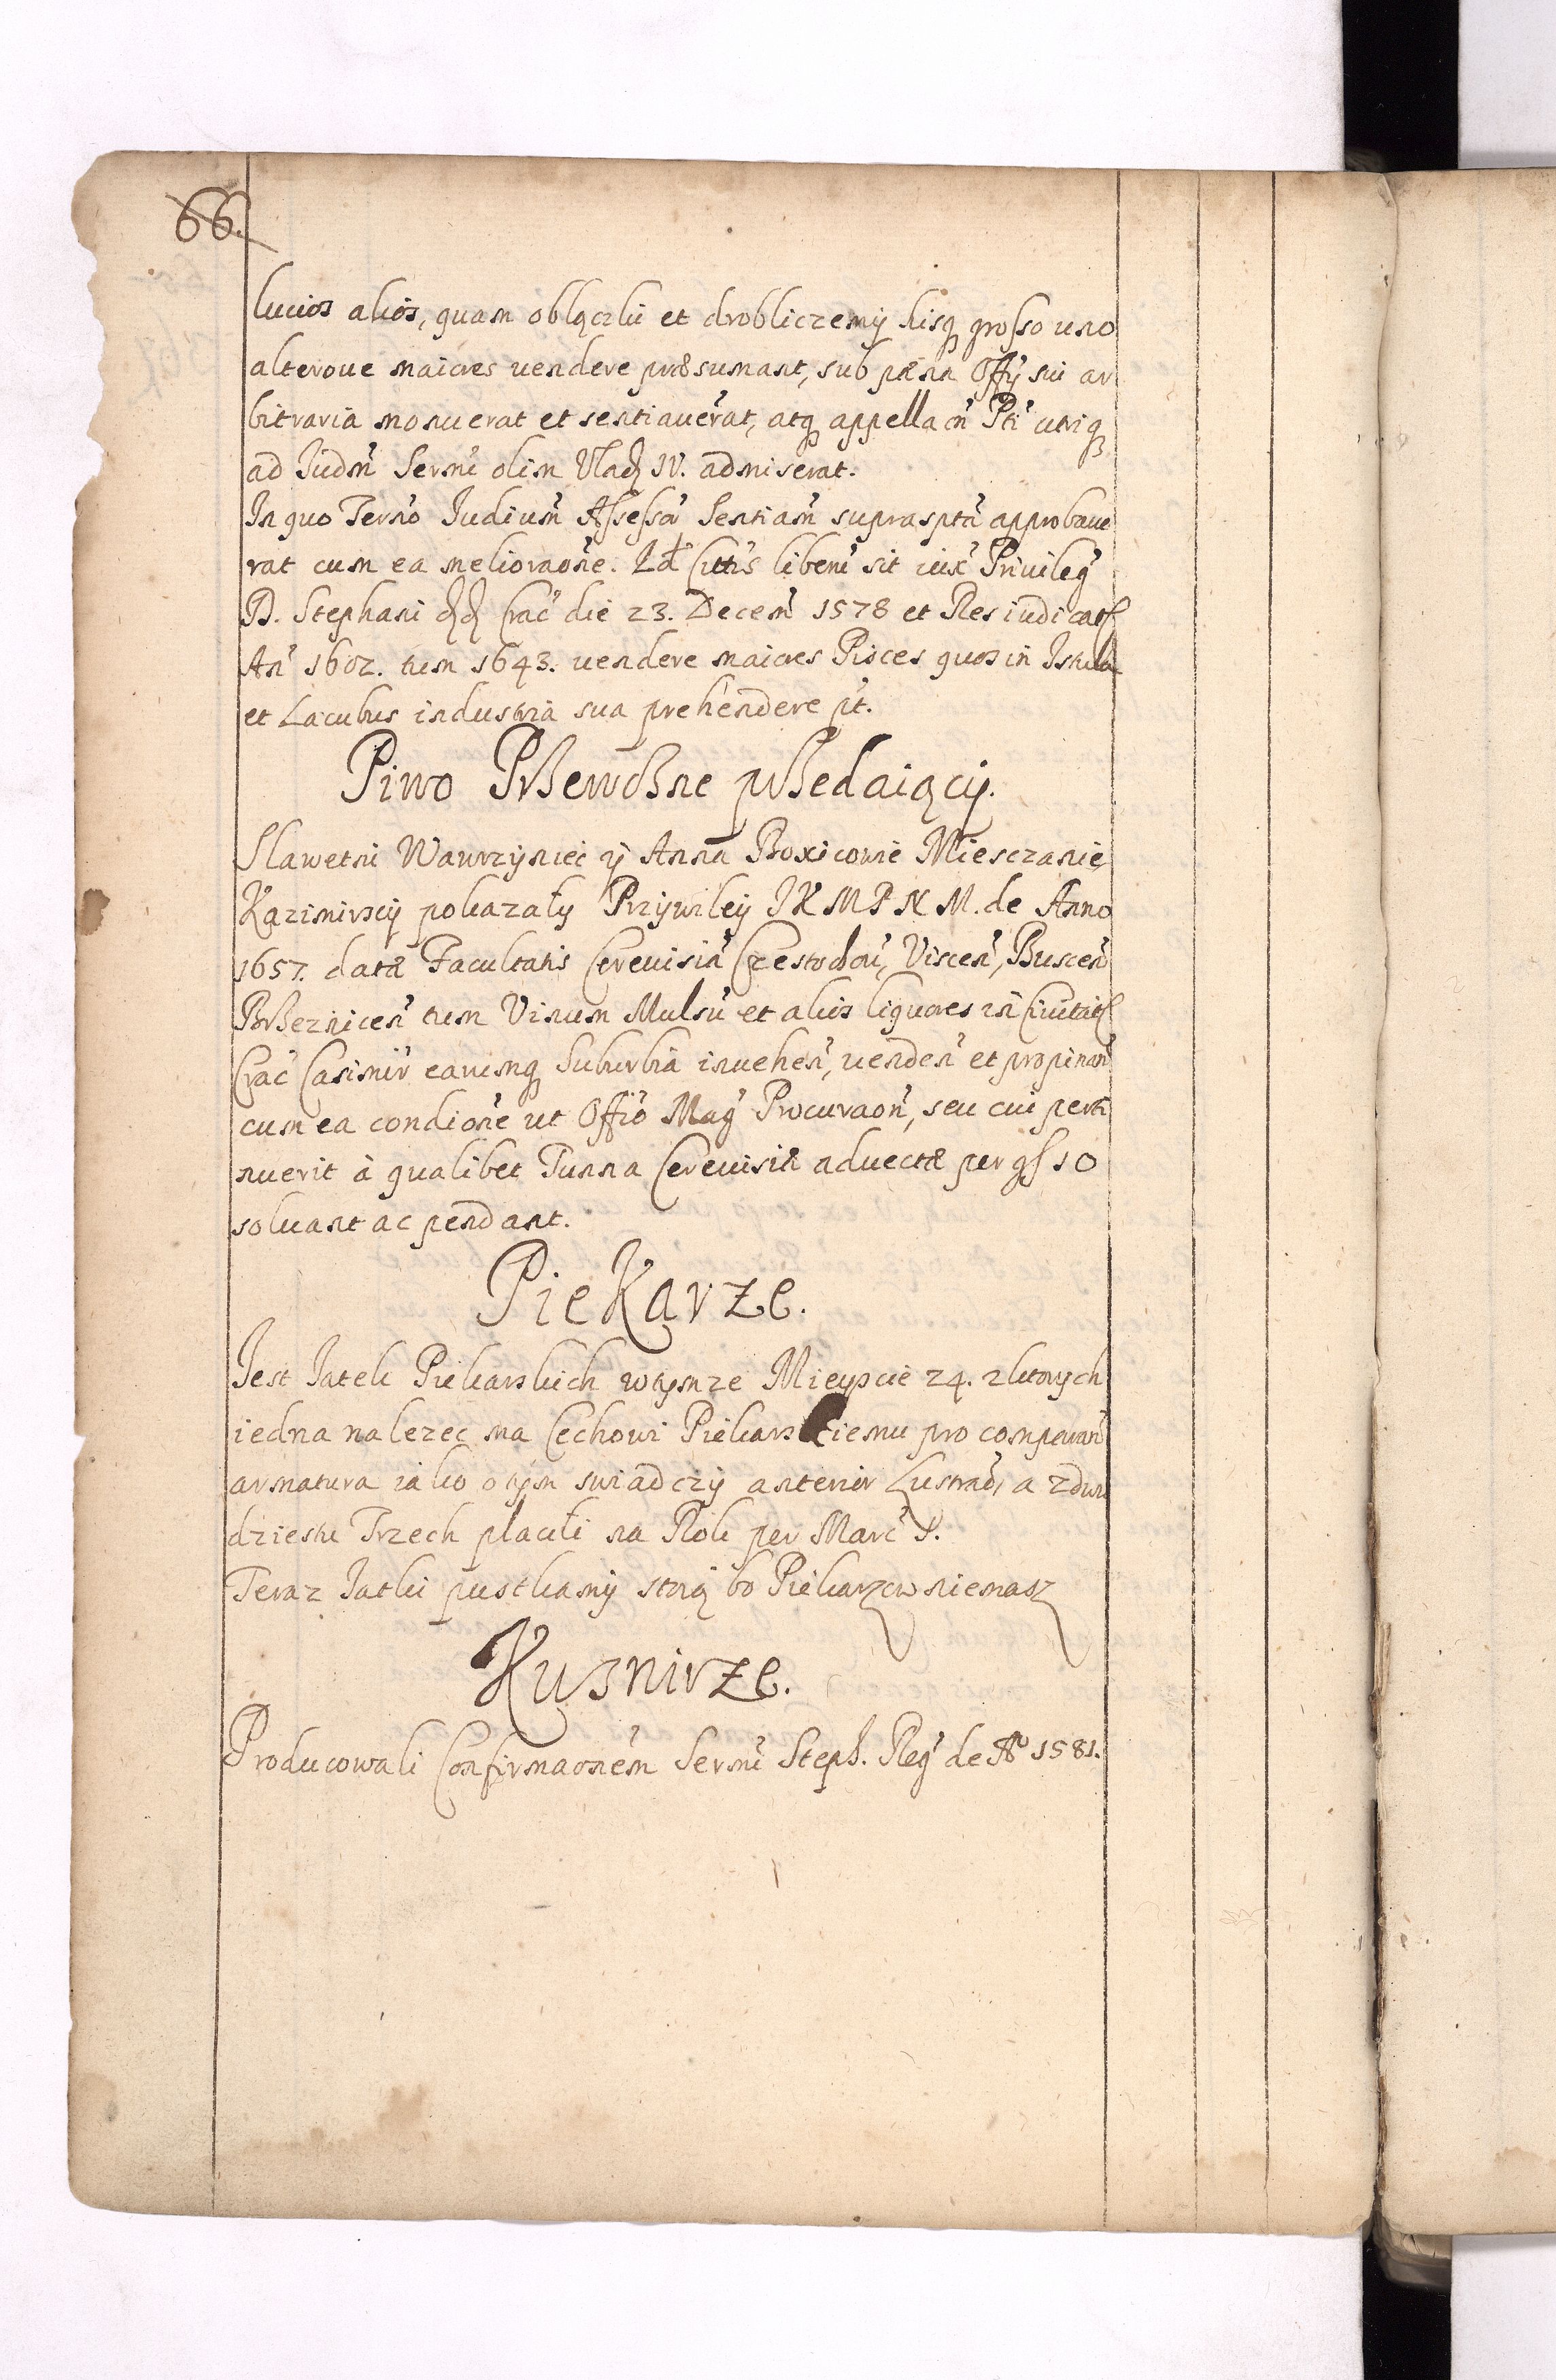 66.
lucios alios, quam oblączki et drobliczemy hisq grosso uno
alterove maiores vendere præsumant, sub pæna Offy sui ar
bitraria monuerat et sentiauerat, atq appellaoñ Pti utriq
ad Iudm Sermi olim Vlad IV. admiserat.
In quo Termo Iudium Assessor Sentiam suprasptã approbave
rat cum ea melioraone. Id Cittis liberu sit iux Privileg
D. Stephani dd Crac die 23. Decem 1578 et Res iudicat
An 1602. tum 1643. vendere maiores Pisces quos in Istula
et Lacubus industria sua prehendere pt.
Piwo Przewozne przedaiący.
Slawetni Wawrzyniec y Anna Boxicowie Miesczanie
Kazimirscy pokazały Przywiley I K M P N M. de Anno
1657. datæ Facultatis Cerevisia Czestochov, Viscen, Buscen
Brzeznicen tum Vinum Mulsu et alios liquores in Civitat
Crac Casimir earumq Suburbia invehen, venden et propinan
cum ea condione ut Offio Mag Procuraon, seu cui perti
nuerit à qualibet Tunna Cerevisiæ advectæ per gs 10
solvant ac pendant.
Piekarze.
Iest Iatek Piekarskich wtymze Mieyscie 24. zktorych
iedna nalezec ma Cechowi Piekarskiemu pro comparan
armatura iako otym swiadczy anterior Lustrao, a zdwu
dziestu Trzech placili na Rok per Marc I.
Teraz Iatki pustkamy stoią bo Piekarzow niemasz
Kusnirze.
Producowali Confirmaonem Sermi Steph. Reg de Ao 1581.